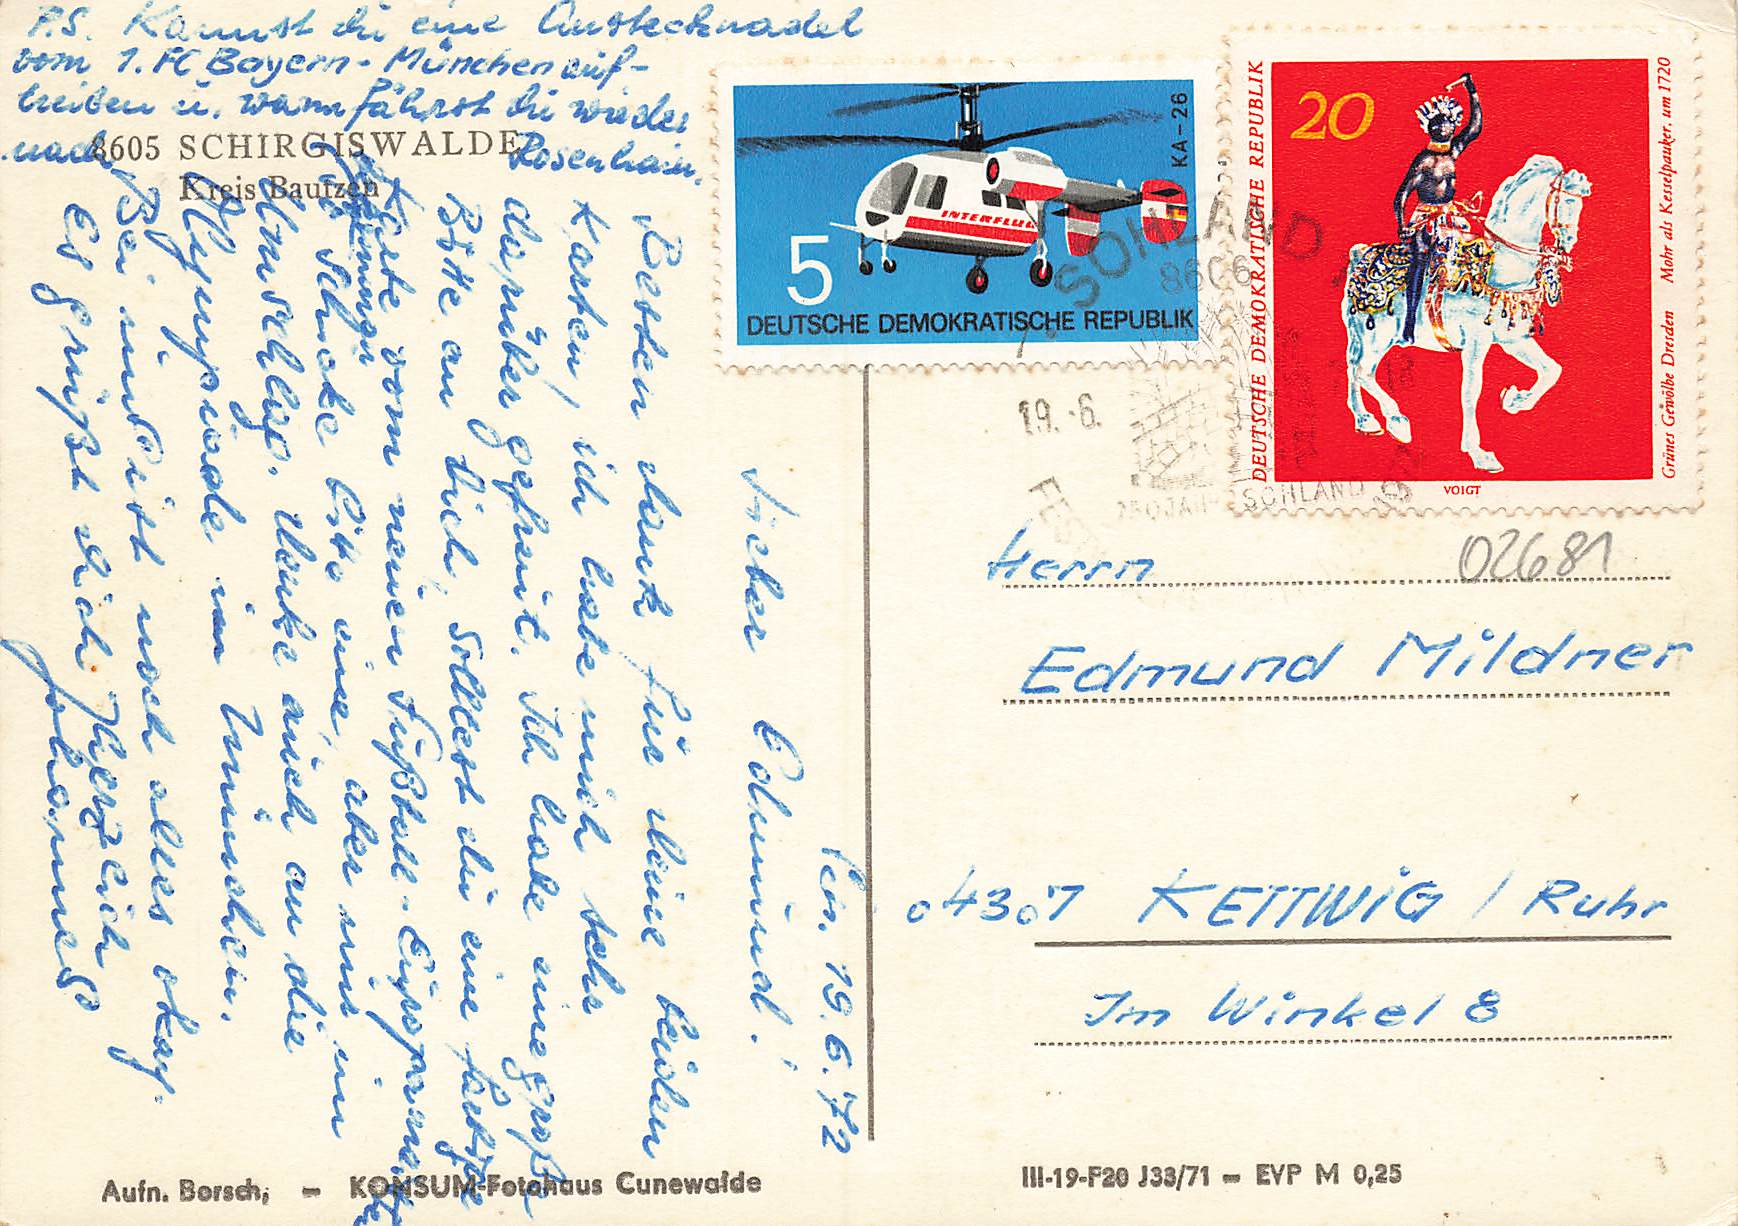 P.S. Kannst du eine Anstecknadel
vom 1. FC Bayern-München auf-
treiben u. wann fährst du wieder
nach Rosenhain.
8605 SCHIRGISWALDE
Kreis Bautzen
den, 19.6.72
Lieber Edmund!
Besten dank für deine beiden
Karten, ich habe mich sehr
darüber gefreut. Ich habe eine große
Bitte an dich, solltest du eine farbige
Karte vom neuen Fußball-Europameister
schicke bitte eine, aber nur im
Umschlag. Denke auch an die
Olympiade in München.
Bei uns ist noch alles okay.
Es grüßt dich herzlich
Johannes
KA-26
INTERFLUG
5
DEUTSCHE DEMOKRATISCHE REPUBLIK
DEUTSCHE DEMOKRATISCHE REPUBLIK
20
Grünes Gewölbe Dresden Mohr als Kesselpauker, um 1720
VOIGT
SOHLAND
8606
19.-6.
FES
250 JAH
SOHLAND
02681
Herrn
Edmund Mildner
4307 KETTWIG / Ruhr
Im Winkel 8
Aufn. Borsch, — KONSUM-Fotohaus Cunewalde
III-19-F20 J33/71 — EVP M 0,25